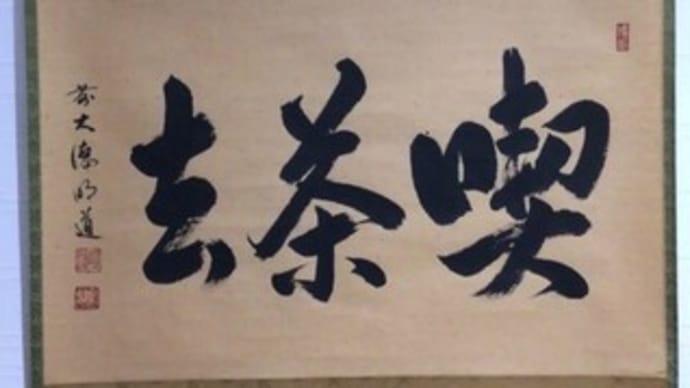 喫茶去
前大徳明道